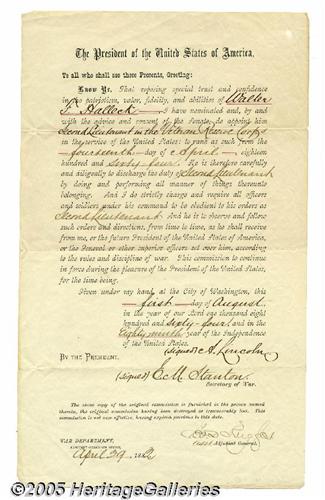 The President of the United States of America.
To all who shall see these Presents, Greeting:
Know Ye, That reposing special trust and confidence
in the patriotism, valor, fidelity, and abilities of Walter
F. Hallock I have nominated and, by and
with the advice and consent of the Senate, do appoint him
Second Lieutenant in the Veteran Reserve Corps
in the service of the United States: to rank as such from the
fourteenth day of April eighteen
hundred and sixty four. He is therefore carefully
and diligently to discharge the duty of Second Lieutenant
by doing and performing all manner of things thereunto
belonging. And I do strictly charge and require all officers
and soldiers under his command to be obedient to his orders as
Second Lieutenant And he is to observe and follow
such orders and directions, from time to time, as he shall receive
from me, or the future President of the United States of America,
or the General or other superior officers set over him, according
to the rules and discipline of war. This commission to continue
in force during the pleasure of the President of the United States,
for the time being.
Given under my hand at the City of Washington, this
first day of August
in the year of our Lord one thousand eight
hundred and sixty-four, and in the
Eighty ninth year of the Independence
of the United States.
(signed) A. Lincoln
By the President,
(signed) E. M. Stanton
Secretary of War.
The above copy of the original commission is furnished to the person named
thereby, the original commission having been destroyed or irrecoverably lost. This
commission is not now effective, having expired previous to this date.
War Department,
Adjutant General's Office,
Adjutant General.
April 29
©2005 HeritageGalleries.com